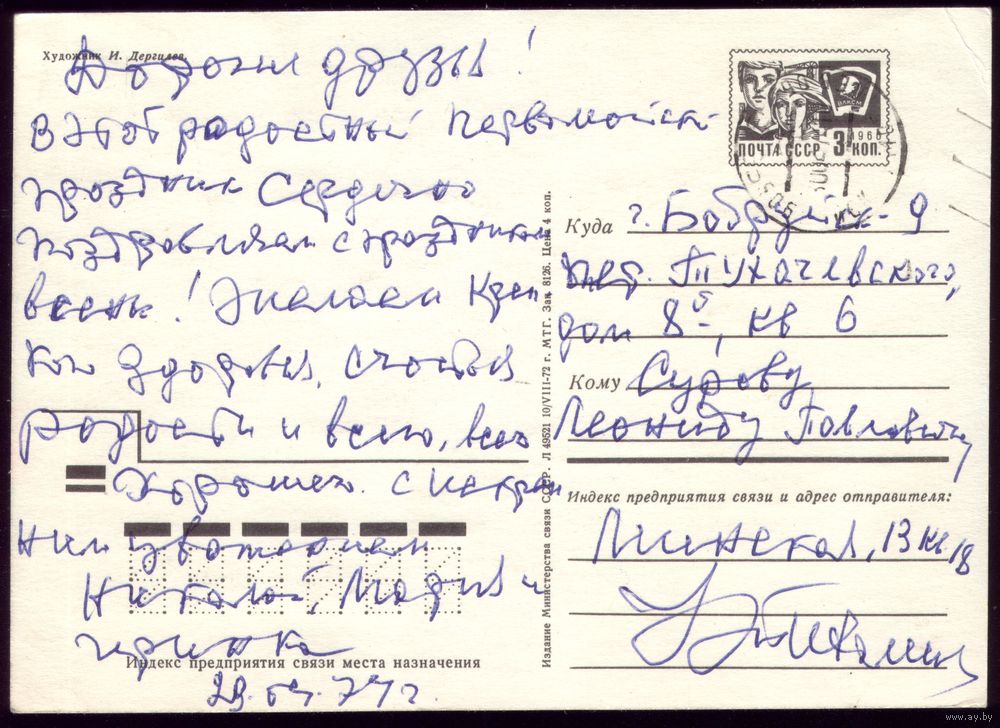 Художник И. Дергилев.
Дорогие друзья!
В этот радостный первомайский
праздник сердечно
поздравляем с праздником
весны! Желаем креп
кого здоровья, счастья
радости и всего, всего
хорошего. С искрен
ним уважением
Николай, Мария и
Иринка
29.04.74 г.
Индекс предприятия связи места назначения
Издание Министерства связи СССР. Л 49521 10/VIII-72 г. МТГ. Зак. 8126. Цена 4 коп.
ВЛКСМ
1966
ПОЧТА СССР 3 КОП.
Куда г. Бобруйск-9
пер. Тухачевского,
дом 8, кв 6
Кому Сурову
Леониду Павловичу
Индекс предприятия связи и адрес отправителя:
Минская, 13 кв 18
www.ay.by